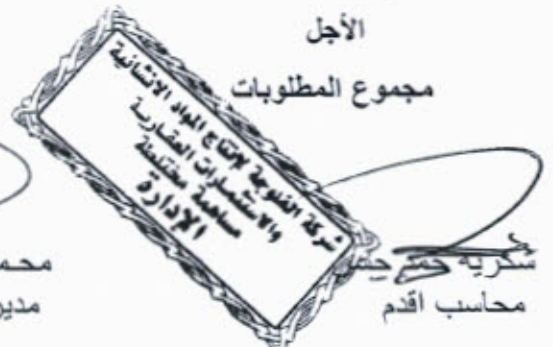 الأجل
مجموع المطلوبات
شركة الفلوجة لإنتاج المواد الانشائية
والاستثمارات العقارية
مساهمة مختلطة
الإدارة
شكرية حمد حسن
محاسب اقدم
محمد
مدير